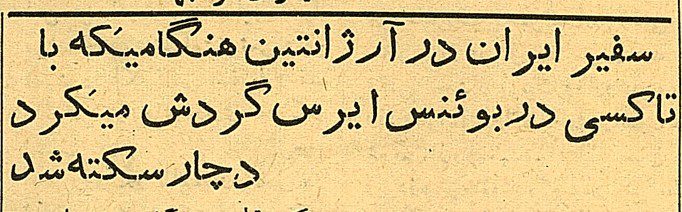 سفیر ایران در آرژانتین هنگامیکه با
تاکسی در بوئنس ایرس گردش میکرد
دچار سکته شد